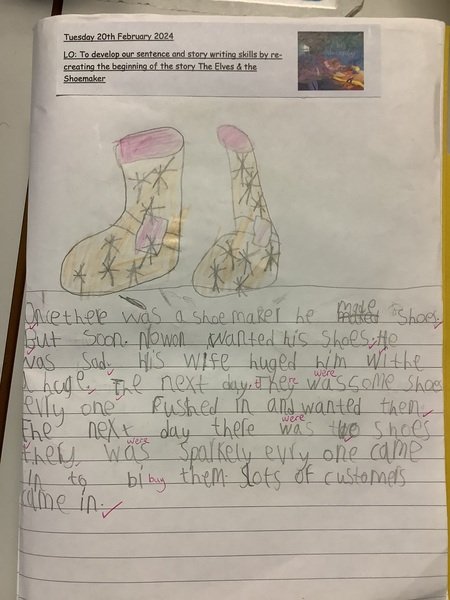 Tuesday 20th February 2024
LO: To develop our sentence and story writing skills by re-
creating the beginning of the story The Elves & the
Shoemaker
made
Once there was a shoe maker he maked shoes.
But soon. Nowon wanted his shoes. He
was sad. His wife huged him withe
a huge. The next day. there were was some shoes
evry one rushed in and wanted them.
were
The next day there was shoes
were
they was sparkely evry one came
in to bi buy them. lots of customers
came in.